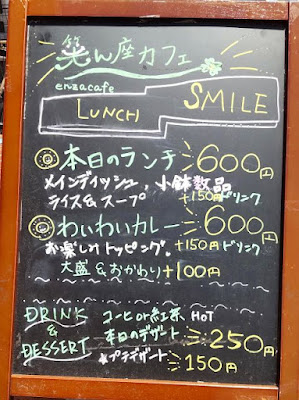 笑ん座カフェ
enzacafe
LUNCH SMILE
本日のランチ 600円
メインディッシュ、小鉢数品
ライス&スープ +150円ドリンク
わいわいカレー 600円
お楽しみトッピング。 +150円ドリンク
大盛&おかわり +100円
DRINK & DESSERT
コーヒor紅茶 HOT
本日のデザート 250円
*プチデザート 150円